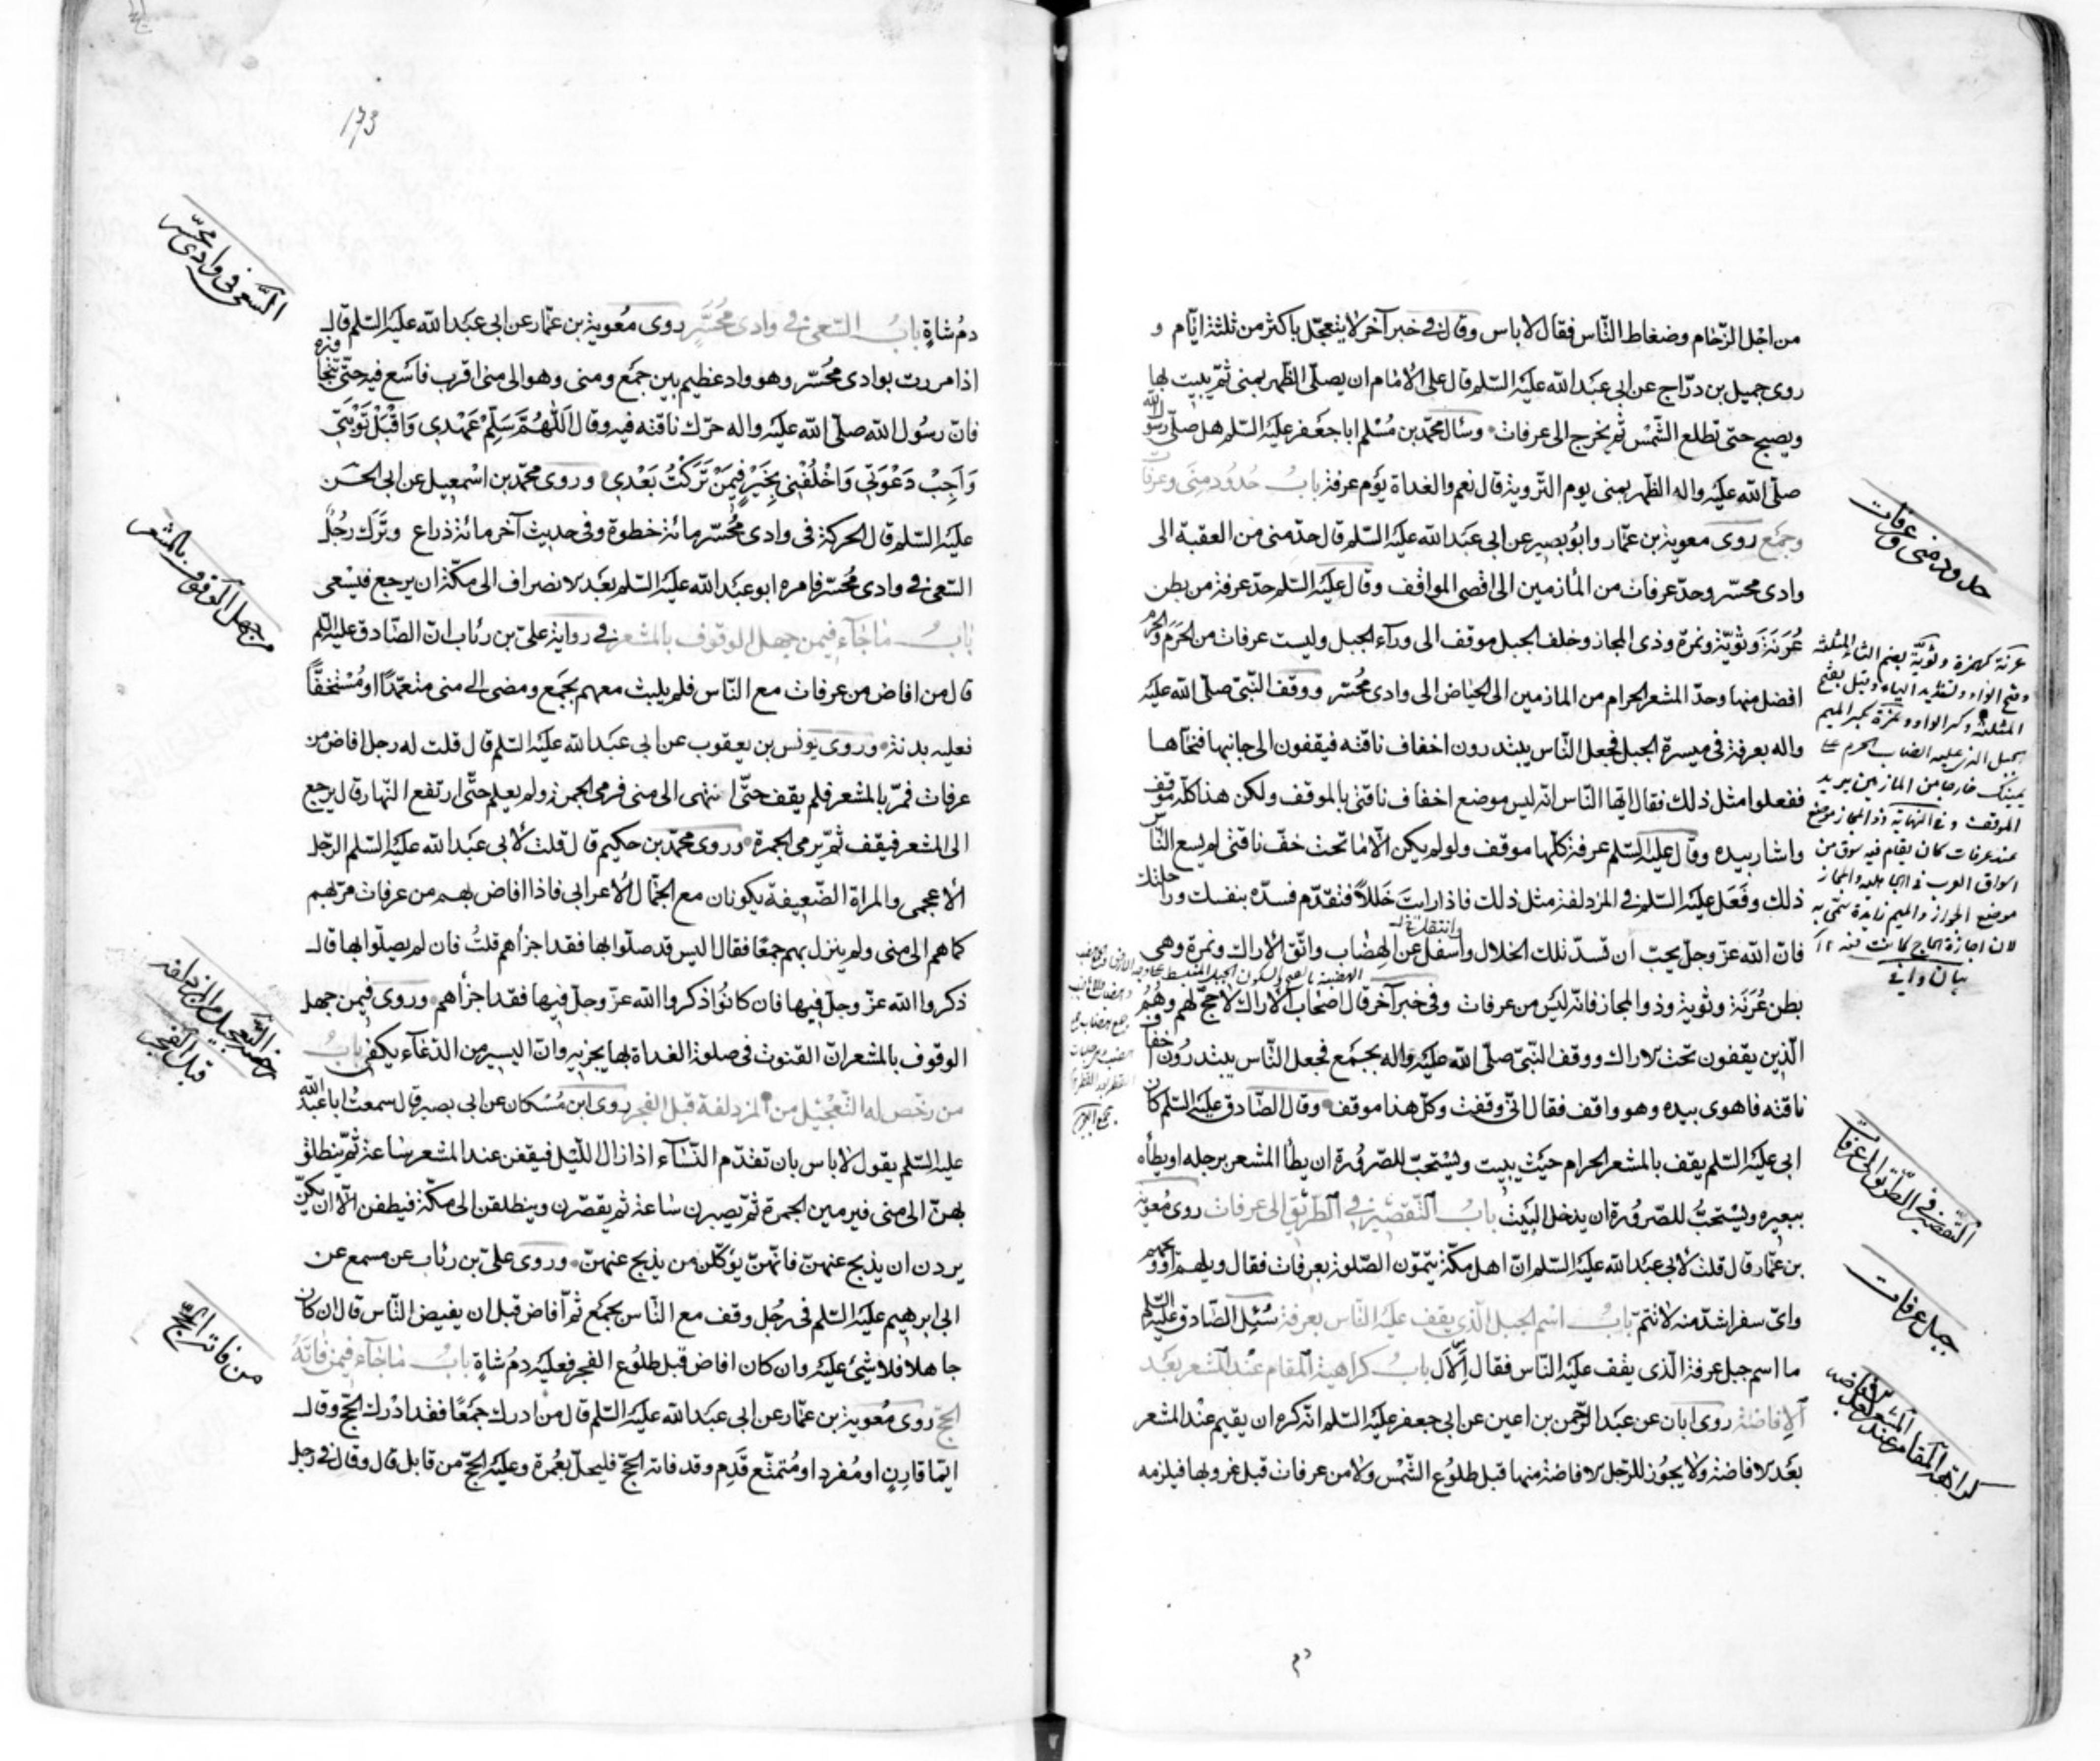 من اجل الزحام وضغاط الناس فقال لا باس وقال في خبر آخر لا يتعجل باكثر من ثلثة ايام و
روى جميل بن دراج عن ابى عبد الله عليه السلم قال على الامام ان يصلى الظهر بمنى ثم يبيت بها
ويصبح حتى تطلع الشمس ثم يخرج الى عرفات وسأل محمد بن مسلم ابا جعفر عليه السلم هل صلى رسول الله
صلى الله عليه واله الظهر بمنى يوم التروية قال نعم والغداة يوم عرفة باب حدود منى وعرفات
وجمع روى معوية بن عمار وابو بصير عن ابى عبد الله عليه السلم قال حد منى من العقبة الى
وادى محسر وحد عرفات من المأزمين الى اقصى الموقف وقال عليه السلم حد عرفة من بطن
عُرَنَة وثويّة ونمرة وذى المجاز وخلف الجبل موقف الى ورآء الجبل وليست عرفات من الحرم والحرم
افضل منها وحد المشعر الحرام من المازمين الى الحياض الى وادى محسر ووقف النبى صلى الله عليه
واله بعرفة فى ميسرة الجبل فجعل الناس يبتدرون اخفاف ناقته فيقفون الى جانبها فنحاها
ففعلوا مثل ذلك فقال ايها الناس انه ليس موضع اخفاف ناقتى بالموقف ولكن هذا كله موقف
واشار بيده وقال عليه السلم عرفة كلها موقف ولو لم يكن الا ما تحت خف ناقتى لم يسع الناس
ذلك وفعل عليه السلم فى المزدلفة مثل ذلك فاذا رايت خللا فتقدم فسده بنفسك وراحلتك
فان الله عز وجل يحب ان تسد تلك الخلال واسفل عن الهضاب واتق الاراك ونمرة وهى
بطن عُرَنَة وثوية وذو المجاز فانه ليس من عرفات وفى خبر آخر قال اصحاب الاراك لا حج لهم وهم
الذين يقفون تحت الاراك ووقف النبى صلى الله عليه واله بجمع فجعل الناس يبتدرون اخفاف
ناقته فاهوى بيده وهو واقف فقال انى وقفت وكل هذا موقف وقال الصادق عليه السلم كان
ابى عليه السلم يقف بالمشعر الحرام حيث يبيت ويستحب للصرورة ان يطأ المشعر برجله او يطأه
ببعيره ويستحب للصرورة ان يدخل البيت باب التقصير فى الطريق الى عرفات روى معوية
بن عمار قال قلت لابى عبد الله عليه السلم ان اهل مكة يتمون الصلوة بعرفات فقال ويلهم او ويحهم
واى سفر اشد منه لا تتم باب اسم الجبل الذى يقف عليه الناس بعرفة سئل الصادق عليه السلم
ما اسم جبل عرفة الذى يقف عليه الناس فقال اِلاَل باب كراهية المقام عند المشعر بعد
الافاضة روى ابان عن عبد الرحمن بن اعين عن ابى جعفر عليه السلم انه كره ان يقيم عند المشعر
بعد الافاضة ولا يجوز للرجل الافاضة منها قبل طلوع الشمس ولا من عرفات قبل غروبها فيلزمه
دم
حدود منى وعرفات
التقصير فى الطريق الى عرفات
جبل عرفات
كراهة المقام عند المشعر بعد الافاضه
173
دم شاةٍ باب السعى فى وادى محسر روى معوية بن عمار عن ابى عبد الله عليه السلم قال
اذا مررت بوادى محسر وهو واد عظيم بين جمع ومنى وهو الى منى اقرب فاسع فيه حتى تجاوزه
فان رسول الله صلى الله عليه واله حرك ناقته فيه وقال اللهم سلم عهدى واقبل توبتى
وَاَجِبْ دَعْوَتى وَاخْلُفْنى بِخَيْرٍ فيمَنْ تَرَكْتُ بَعْدى وروى محمد بن اسمعيل عن ابى الحسن
عليه السلم قال الحركة فى وادى محسر مائة خطوة وفى حديث آخر مائة ذراع وترك رجل
السعى فى وادى محسر فامره ابو عبد الله عليه السلم بعد الانصراف الى مكة ان يرجع فيسعى
باب ما جاء فيمن جهل الوقوف بالمشعر فى رواية على بن رئاب ان الصادق عليه السلم
قال من افاض من عرفات مع الناس فلم يلبث معهم بجمع ومضى الى منى متعمدا او مستخفًّا
فعليه بدنة وروى يونس بن يعقوب عن ابى عبد الله عليه السلم قال قلت له رجل افاض من
عرفات فمر بالمشعر فلم يقف حتى انتهى الى منى فرمى الجمرة ولم يعلم حتى ارتفع النهار قال يرجع
الى المشعر فيقف ثم يرمى الجمرة وروى محمد بن حكيم قال قلت لابى عبد الله عليه السلم الرجل
الاعجمى والمراة الضعيفة يكونان مع الجمال الاعرابى فاذا افاض بهم من عرفات مر بهم
كما هم الى منى ولم ينزل بهم جمعًا فقال اليس قد صلوا بها فقد اجزأهم قلت فان لم يصلوا بها قال
ذكروا الله عز وجل فيها فان كانوا ذكروا الله عز وجل فيها فقد اجزأهم وروى فيمن جهل
الوقوف بالمشعر ان القنوت فى صلوة الغداة بها يجزيه وان اليسير من الدعاء يكفى باب
من رخص له التعجيل من المزدلفة قبل الفجر روى ابن مسكان عن ابى بصير قال سمعت ابا عبد الله
عليه السلم يقول لا باس بان تقدم النساء اذا زال الليل فيقفن عند المشعر ساعة ثم ينطلق
بهن الى منى فيرمين الجمرة ثم يصبرن ساعة ثم يقصرن وينطلقن الى مكة فيطفن الا ان يكن
يردن ان يذبح عنهن فانهن يوكلن من يذبح عنهن وروى على بن رئاب عن مسمع عن
ابى ابرهيم عليه السلم فى رجل وقف مع الناس بجمع ثم افاض قبل ان يفيض الناس قال ان كان
جاهلا فلا شىء عليه وان كان افاض قبل طلوع الفجر فعليه دم شاةٍ باب ما جاء فيمن فاته
الحج روى معوية بن عمار عن ابى عبد الله عليه السلم قال من ادرك جمعًا فقد ادرك الحج وقال
ايما قارن او مفرد او متمتع قدم وقد فاته الحج فليحل بعمرة وعليه الحج من قابل قال وقال فى رجل
السعى فى وادى محسر
من جهل الوقوف بالمشعر
رخصة التعجيل من المزدلفه
قبل الفجر
من فاته الحج